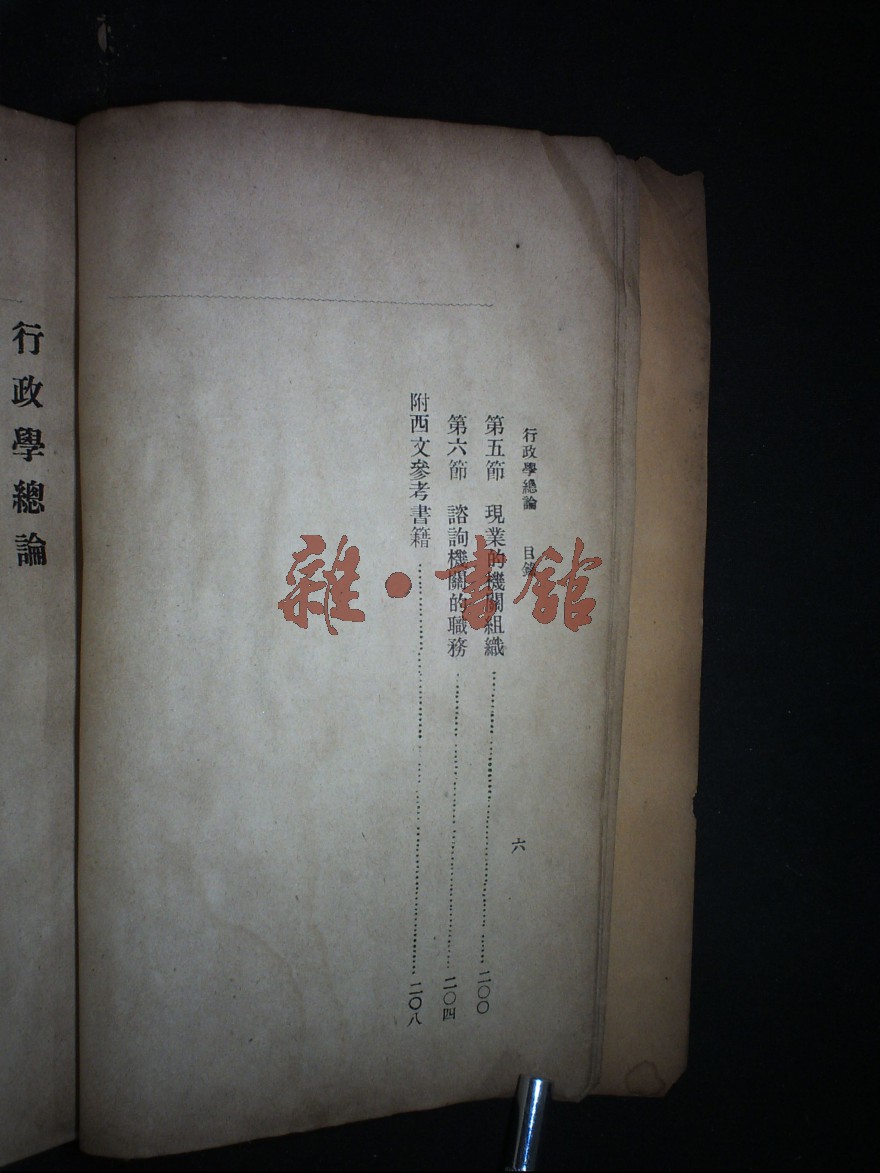 行政學總論 目錄 六
第五節 現業的機關組織 二〇〇
第六節 諮詢機關的職務 二〇四
附西文參考書籍 二〇八
行政學總論
雜·書館